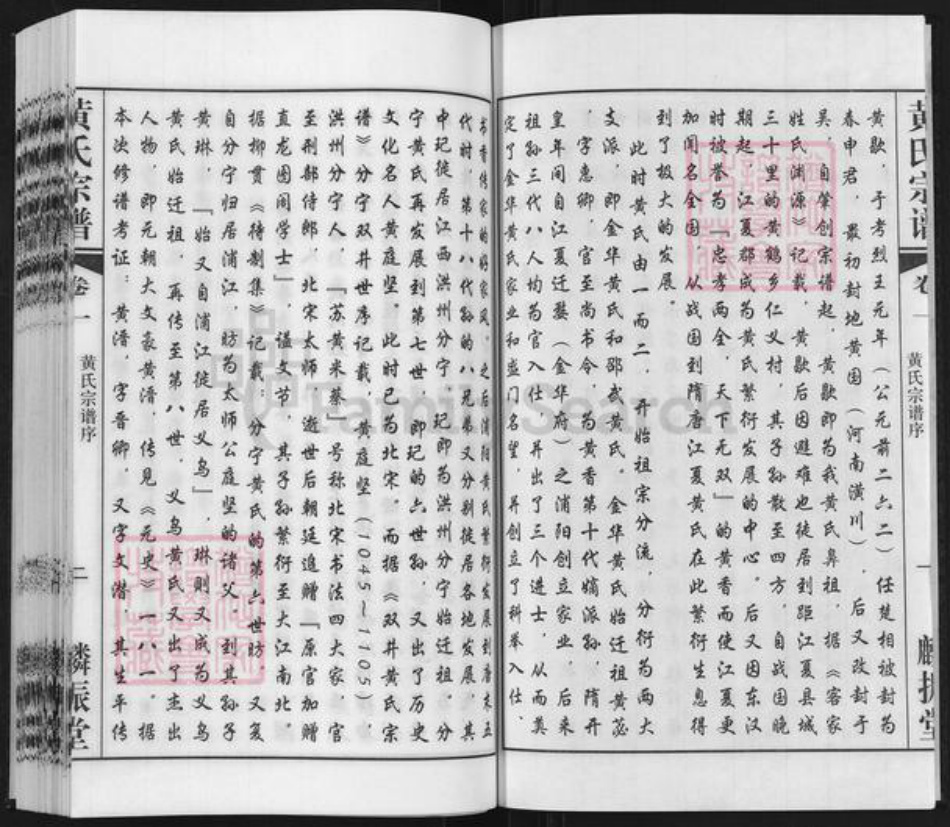 黄氏宗谱
卷一
黄氏宗谱序
一
麟振堂
黄歇，于考烈王元年（公元前二六二）任楚相被封为
春申君，最初封地黄国（河南潢川），后又改封于
吴，自肇创宗谱起，黄歇即为我黄氏鼻祖，据《客家
姓氏渊源》记载，黄歇后因避难也徒居到距江夏县城
三十里的黄鹤乡仁义村，其子孙散至四方，自战国晚
期起，江夏郡成为黄氏繁衍发展的中心。后又因东汉
时被誉为「忠孝两全，天下无双」的黄香而使江夏更
加闻名全国，从战国到隋唐江夏黄氏在此繁衍生息得
到了极大的发展。
此时黄氏由一而二，开始祖宗分流，分衍为两大
支派，即金华黄氏和邵武黄氏。金华黄氏始迁祖黄苾
，字惠卿，官至尚书令，为黄香第十代嫡派孙，隋开
皇年间自江夏迁婺（金华府）之浦阳创立家业，后来
祖孙三代八人均为官入仕，并出了三个进士，从而奠
定了金华黄氏家业和盛门名望，并创立了科举入仕，
书香传家的好家风，之后浦阳黄氏繁衍发展到唐末五
代时，第十八代孙的八兄弟又分别徒居各地发展，其
中玘徒居江西洪州分宁，玘即为洪州分宁始迁祖。分
宁黄氏再发展到第七世，即玘的六世孙，又出了历史
文化名人黄庭坚。此时已为北宋。而据《双井黄氏宗
谱》分宁双井世序记载，黄庭坚（1045—1105），
洪州分宁人，「苏黄米蔡」号称北宋书法四大家，官
至刑部侍郎，北宋太师，逝世后朝廷追赠「原官加赠
直龙图阁学士」，谥文节，其子孙繁衍至大江南北。
据柳贯《待制集》记载：分宁黄氏的第六世昉，又复
自分宁归居浦江，昉为太师公庭坚的诸父，到其孙子
黄琳，「始又自浦江徒居义乌」，琳则又成为义乌
黄氏始迁祖，再传至第八世，义乌黄氏又出了杰出
人物，即元朝大文豪黄溍，传见《元史》一八一。据
本次修谱考证：黄溍，字晋卿，又字文潜，其生平传
黄氏宗谱
卷一
黄氏宗谱序
二
麟振堂
FamilySearch